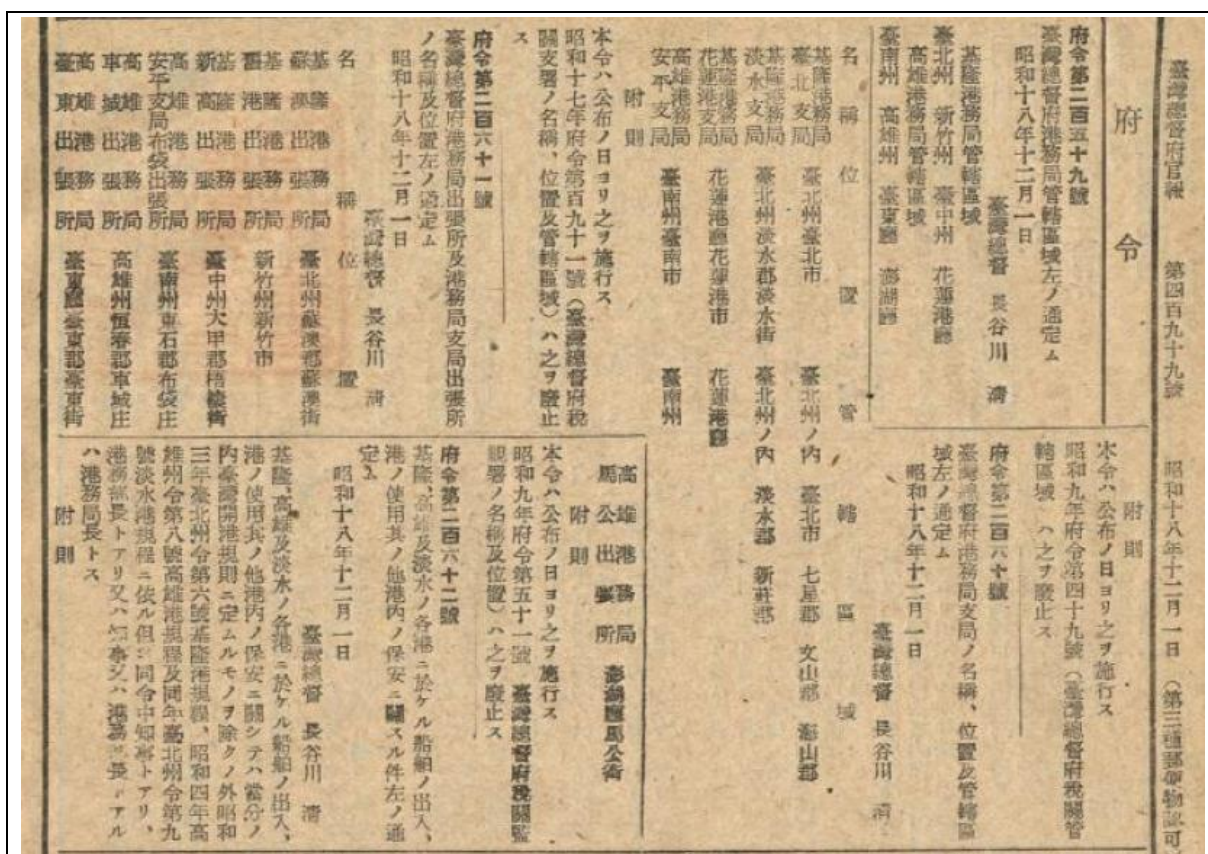 臺灣總督府官報 第四百九十九號 昭和十八年十二月一日 (第三種郵便物認可)
府令
府令第二百五十九號
臺灣總督府港務局管轄區域左ノ通定ム
昭和十八年十二月一日
臺灣總督 長谷川 清
基隆港務局管轄區域
臺北州 新竹州 臺中州 花蓮港廳
高雄港務局管轄區域
臺南州 高雄州 臺東廳 澎湖廳
附則
本令ハ公布ノ日ヨリ之ヲ施行ス
昭和九年府令第四十九號(臺灣總督府稅關管
轄區域)ハ之ヲ廢止ス
府令第二百六十號
臺灣總督府港務局支局ノ名稱、位置及管轄區
域左ノ通定ム
昭和十八年十二月一日
臺灣總督 長谷川 清
名稱 位置 管轄區域
基隆港務局臺北支局 臺北州臺北市 臺北州ノ內 臺北市 七星郡 文山郡 海山郡
基隆港務局淡水支局 臺北州淡水郡淡水街 臺北州ノ內 淡水郡 新莊郡
基隆港務局花蓮港支局 花蓮港廳花蓮港市 花蓮港廳
高雄港務局安平支局 臺南州臺南市 臺南州
附則
本令ハ公布ノ日ヨリ之ヲ施行ス
昭和十七年府令第百九十一號(臺灣總督府稅
關支署ノ名稱、位置及管轄區域)ハ之ヲ廢止
ス
府令第二百六十一號
臺灣總督府港務局出張所及港務局支局出張所
ノ名稱及位置左ノ通定ム
昭和十八年十二月一日
臺灣總督 長谷川 清
名稱 位置
基隆港務局蘇澳出張所 臺北州蘇澳郡蘇澳街
基隆港務局舊港出張所 新竹州新竹市
基隆港務局新高出張所 臺中州大甲郡梧棲街
高雄港務局安平支局布袋出張所 臺南州東石郡布袋庄
高雄港務局車城出張所 高雄州恒春郡車城庄
高雄港務局臺東出張所 臺東廳臺東郡臺東街
高雄港務局馬公出張所 澎湖廳馬公街
附則
本令ハ公布ノ日ヨリ之ヲ施行ス
昭和九年府令第五十一號(臺灣總督府稅關監
視署ノ名稱及位置)ハ之ヲ廢止ス
府令第二百六十二號
基隆、高雄及淡水ノ各港ニ於ケル船舶ノ出入、
港ノ使用其ノ他港內ノ保安ニ關スル件左ノ通
定ム
昭和十八年十二月一日
臺灣總督 長谷川 清
基隆、高雄及淡水ノ各港ニ於ケル船舶ノ出入、
港ノ使用其ノ他港內ノ保安ニ關シテハ當分ノ
內臺灣開港規則ニ定ムルモノヲ除クノ外昭和
三年臺北州令第六號基隆港規程、昭和四年高
雄州令第八號高雄港規程及同年臺北州令第九
號淡水港規程ニ依ル但シ同令中知事トアリ、
港務部長トアリ又ハ知事又ハ港務部長トアル
ハ港務局長トス
附則